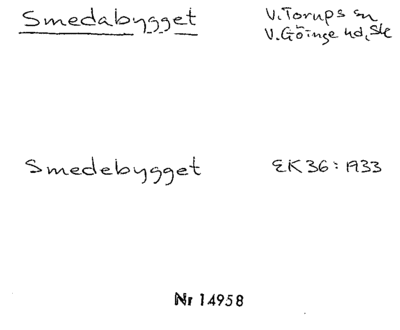 Smedabygget V. Torups sn
V. Göinge hd, Sk
Smedebygget EK 36: 1933
Nr 14958